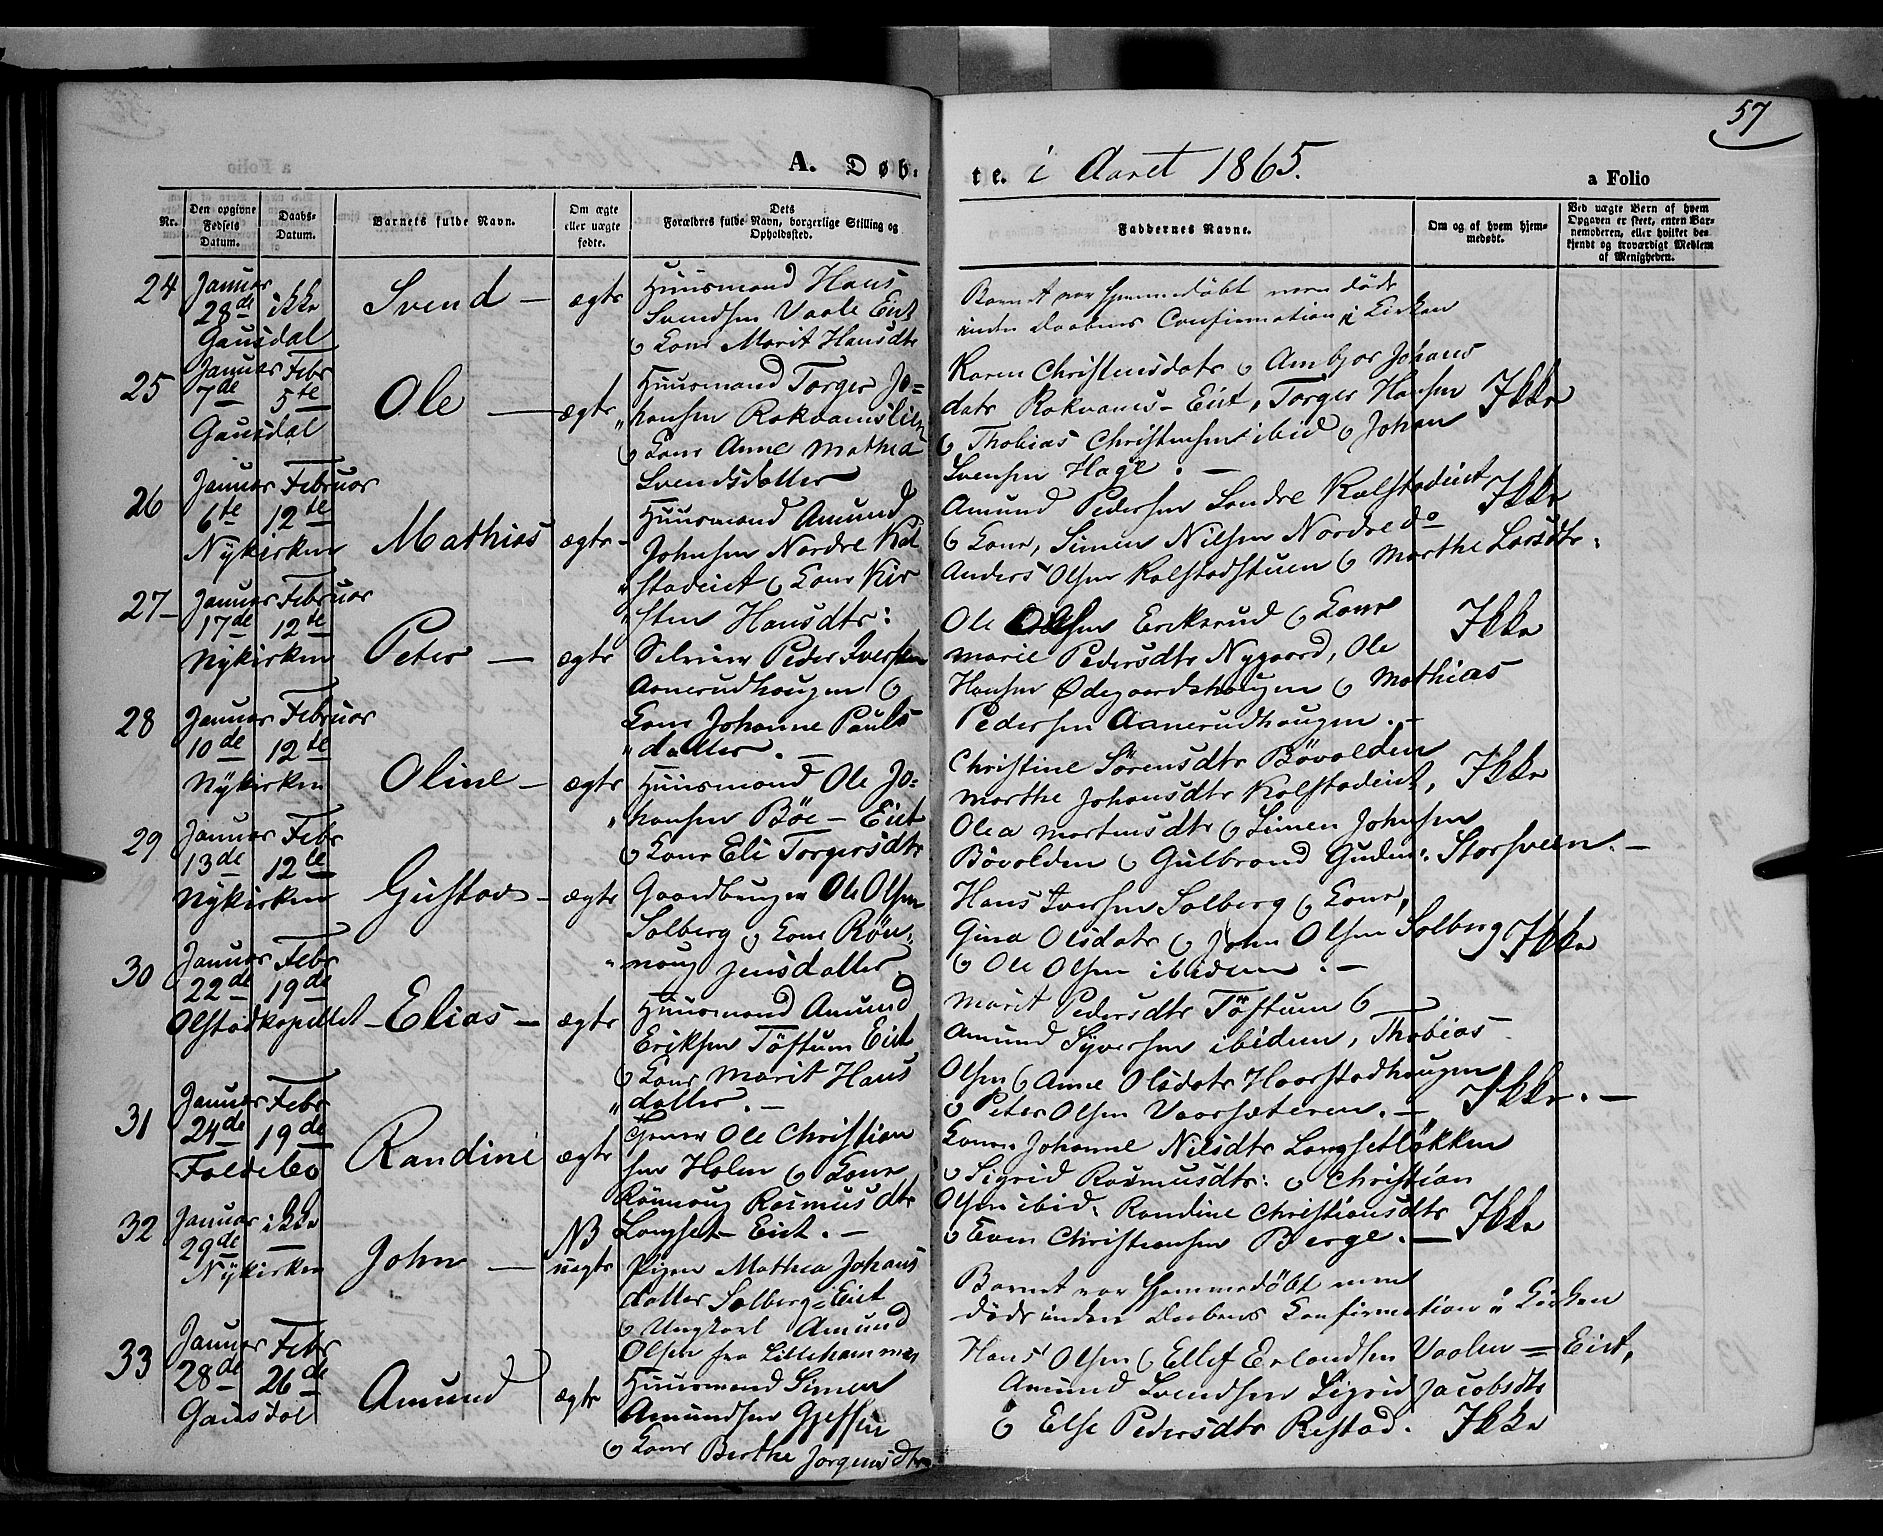 57
A. Døb-
te. i Aaret 1865.
a Folio
Nr.
Den opgivne Fødsels Datum.
Daabs-Datum.
Barnets fulde Navn.
Om ægte eller uægte fødte.
Dets Forældres fulde Navn, borgerlige Stilling og Opholdssted.
Faddernes Navne.
Om og af hvem hjem-medøbt.
Ved uægte Børn af hvem Opgaven er skeet, enten Bar-nemoderen, eller hvilket be-kjendt og troværdigt Medlem af Menigheden.
24
Januar
28de ikke
Gausdal
Svend —
ægte
Huusmand Hans
Svendsen Vaale Eiet
og Kone Marit Hansdtr
Barnet var hjemmedøbt men døde
inden Daabens Confirmation i Kirken
25
Januar Febr
7de 5te
Gausdal
Ole —
ægte
Huusmand Torger Jo-
hansen Rokvamslien
og Kone Anne Mathea
Svendsdatter
Karen Christensdatr og Ambjor Johans
datr Rokvams-Eiet, Torger Hansen
og Thobias Christensen ibid og Johan
Svensen Hage. —
Ikke
26
Januar Februar
6te 12te
Nykirken
Mathias
ægte
Huusmand Amund
Johnsen Nordre Kal
stadeiet og Kone Kir
sten Hansdtr:
Amund Pedersen Søndre Kalstadeiet
og Kone, Simen Nilsen Nordre do
Anders Olsen Kalstadstuen og Marthe Larsdtr.
Ikke
27
Januar Februar
17de 12te
Nykirken
Peter —
ægte
Selveier Peder Iversen
Aanerudhaugen og
Kone Johanne Pauls
datter. —
Ole Olsen Erikerud og Kone
Marie Pedersdtr Nygaard, Ole
Hansen Ødegaardshaugen og Mathias
Pedersen Aanerudhaugen. —
Ikke
28
Januar Februar
10de 12te
Nykirken
Oline —
ægte
Huusmand Ole Jo-
hansen Böe - Eiet
og Kone Eli Torgersdtr
Christine Sörensdtr Bövolden
Marthe Johansdtr Kalstadeiet,
Olea Mortensdtr og Simen Johnsen
Bövolden og Gulbrand Gudm: Storsveen. —
Ikke
29
Januar Febr
13de 12te
Nykirken
Gustav —
ægte
Gaardbruger Ole Olsen
Solberg og Kone Rön-
naug Jensdatter
Hans Iversen Solberg og Kone,
Gina Olsdatr og John Olsen Solberg
og Ole Olsen ibidem. —
Ikke
30
Januar Febr
22de 19de
Olstadkapellet
Elias —
ægte
Huusmand Amund
Eriksen Töftum Eiet
og Kone Marit Hans
datter. —
Marit Pedersdtr Töftum og
Amund Syversen ibidem, Thobias
Olsen og Anne Olsdatr Haarstadhaugen
og Peter Olsen Vaarsæteren. —
Ikke. —
31
Januar Febr
24de 19de
Foldebo
Randine
ægte
Ole Christian
sen Holm og Kone
Rönnaug Rasmusdtr
Longset- Eiet. —
Konen Johanne Nilsdtr Longsetlökken
og Sigrid Rasmusdtr: og Christian
Olsen ibid. Randine Christiansdtr
og Even Christiansen Berge. —
Ikke
32
Januar ikke
29de —
Nykirken
John —
NB
uægte
Pigen Mathea Johans
datter Solberg=Eiet
og Ungkarl Amund
Olsen fra Lillehammer
Barnet var hjemmedøbt men
døde inden Daabens Confirmation i Kirken
33
Januar Febr
28de 26de
Gausdal
Amund
ægte
Huusmand Simen
Amundsen Gjefsen
og Kone Berthe Jørgensdtr
Hans Olsen og Ellef Erlandsen Vaalen = Eiet,
Amund Svendsen Sigrid Jacobsdtr
og Else Pedersdtr Restad.
Ikke